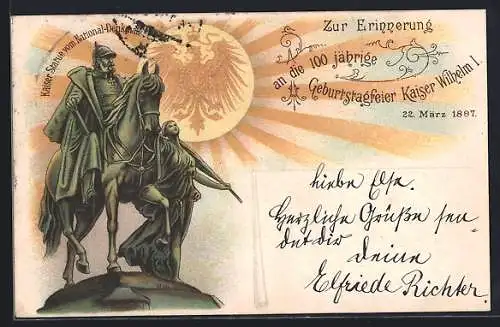 Kaiser Statue vom National-Denkmal
Zur Erinnerung
an die 100 jährige
Geburtstagfeier Kaiser Wilhelm I.
22. März 1897.
Liebe Else.
Herzliche Grüße sen-
det dir
deine
Elfriede Richter